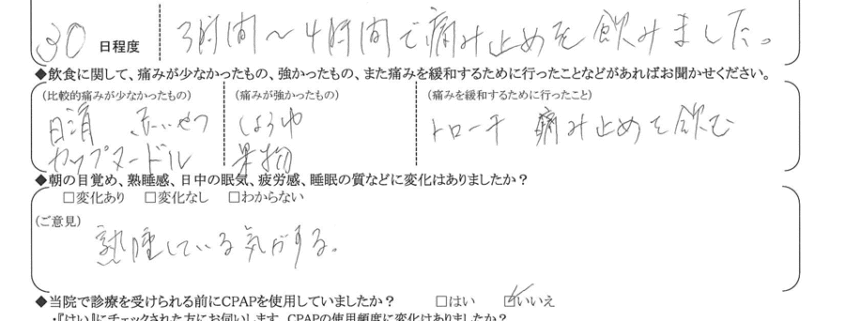 30 日程度 3時間～4時間で痛み止めを飲みました。
◆飲食に関して、痛みが少なかったもの、強かったもの、また痛みを緩和するために行ったことなどがあればお聞かせください。
(比較的痛みが少なかったもの) (痛みが強かったもの) (痛みを緩和するために行ったこと)
日清 しょうゆ トローチ 痛み止めを飲む
カップヌードル 果物
◆朝の目覚め、熟睡感、日中の眠気、疲労感、睡眠の質などに変化はありましたか？
□変化あり □変化なし □わからない
(ご意見)
熟睡している気がする。
◆当院で診療を受けられる前にCPAPを使用していましたか？ □はい ☑いいえ
・『はい』にチェックされた方にお伺いします。CPAPの使用頻度に変化はありましたか？